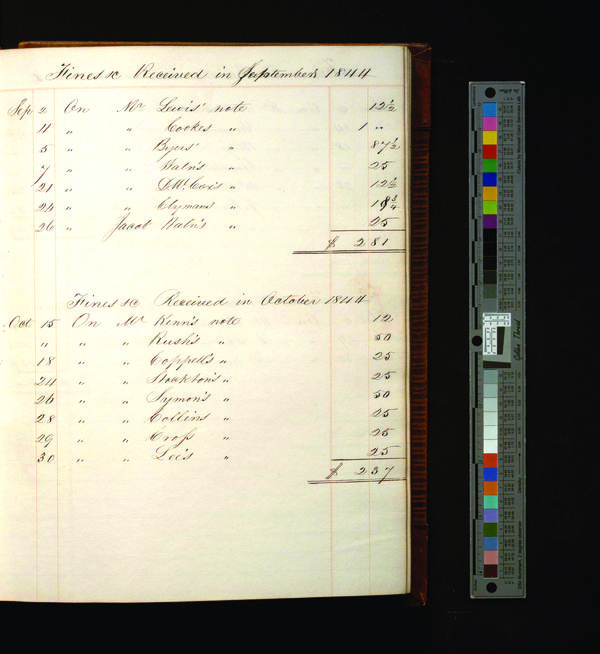 Fines &c Received in September 1844
Sep 2 On Mr Lewis' note 12½
4 " " Cookes " 1 "
5 " " Byers' " 87½
7 " " Hahn's " 25
21 " " " 12½
24 " " Clymans " 18¾
26 " Jacob Hahn's " 25
$ 2 81
Fines &c Received in October 1844
Oct 15 On Mr Kenn's note 12
" " " Rush's " 50
18 " " Coppell's " 25
24 " " Stockton's " 25
26 " " Symon's " 50
28 " " Collins " 25
29 " " Cross " 25
30 " " Lee's " 25
$ 2 37